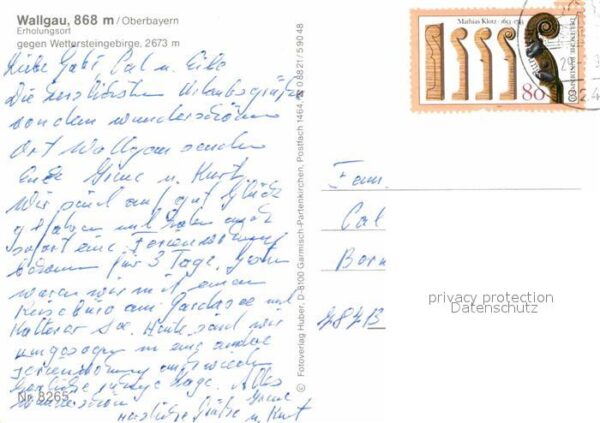 Wallgau, 868 m / Oberbayern
Erholungsort
gegen Wettersteingebirge, 2673 m
Liebe Gabi Cal u. Eibo
Die herzlichsten Urlaubsgrüße
von dem wunderschönen
Ort Wallgau senden
Euch u. Kurt.
Wir sind auf gut Glück
gefahren und haben auch
sofort eine Ferienwohnung
für 3 Tage. Gestern
waren wir mit einem
am Gardasee und
Kalterer See. Heute sind wir
umgezogen in eine andere
Ferienwohnung
Lage. Alles
wunderschön
herzliche Grüße u. Kurt
Nr. 8265
© Fotoverlag Huber, D-8100 Garmisch-Partenkirchen, Postfach 1464, ☎ 08821/59048
Mathias Klotz · 1653-1743
80
DEUTSCHE BUNDESPOST
Fam.
Cal
Born
privacy protection
Datenschutz